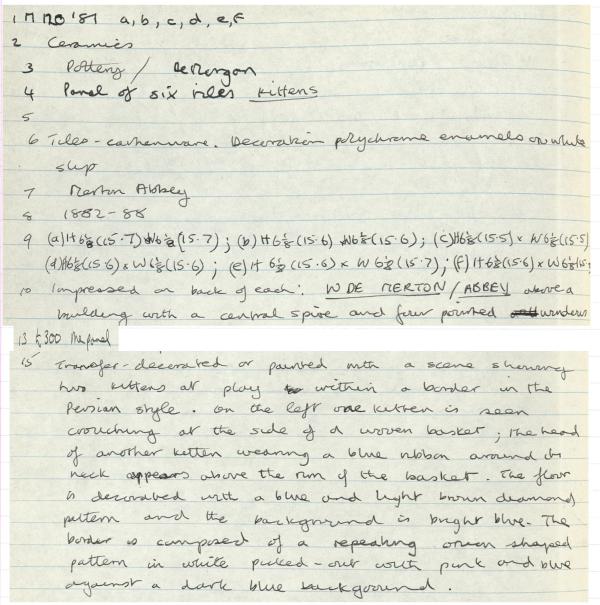 1 MMO '87 a,b,c,d,e,F
2 Ceramics
3 Pottery / DeMorgan
4 Panel of six tiles Kittens
5
6 Tiles - earthenware. Decoration polychrome enamels on white
slip
7 Merton Abbey
8 1882-88
9 (a) H 6⅛ (15.7) W 6⅛ (15.7); (b) H 6⅛ (15.6) W 6⅛ (15.6); (c) H 6⅛ (15.5) x W 6⅛ (15.5)
(d) H 6⅛ (15.6) x W 6⅛ (15.6); (e) H 6⅛ (15.6) x W 6⅛ (15.7); (F) H 6⅛ (15.6) x W 6⅛
10 Impressed on back of each: W DE MERTON / ABBEY above a
building with a central spire and four pointed windows
13 £300 the panel
15 Transfer-decorated or painted with a scene showing
two kittens at play within a border in the
Persian style. On the left one kitten is seen
crouching at the side of a woven basket; the head
of another kitten wearing a blue ribbon around its
neck appears above the rim of the basket. The floor
is decorated with a blue and light brown diamond
pattern and the background is bright blue. The
border is composed of a repeating onion shaped
pattern in white picked-out with pink and blue
against a dark blue background.